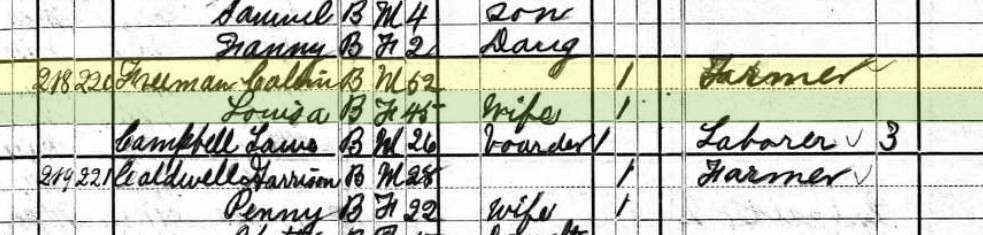 Samuel B M 4 Son
Fanny B F 2 Daug
218 220 Freeman Calvin B M 52 1 Farmer
Louisa B F 45 Wife 1
Campbell Laws B M 26 boarder 1 Laborer 3
219 221 Caldwell Harrison B M 28 1 Farmer
Penny B F 22 Wife 1